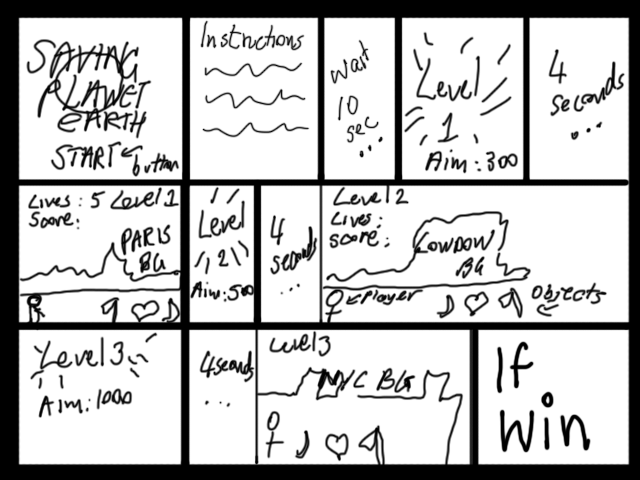 SAVING
PLANET
EARTH
START ← button
Instructions
Wait
10
sec
...
Level
1
Aim: 300
4
seconds
...
Lives: 5 Level 1
Score:
PARIS
BG
Level
2
Aim: 500
4
seconds
...
Level 2
Lives:
Score:
LONDON
BG
← Player
Objects
←
Level 3
Aim: 1000
4 seconds
...
Level 3
NYC BG
If
Win